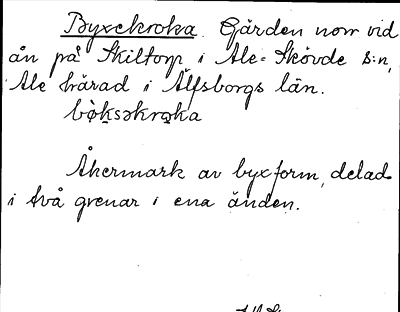 Byxekroka. Gärden norr vid
ån på Skiltorp i Ale-Skövde s:n,
Ale härad i Älfsborgs län.
bø̀ksəkrǫka
Åkermark av byxform, delad
i två grenar i ena änden.